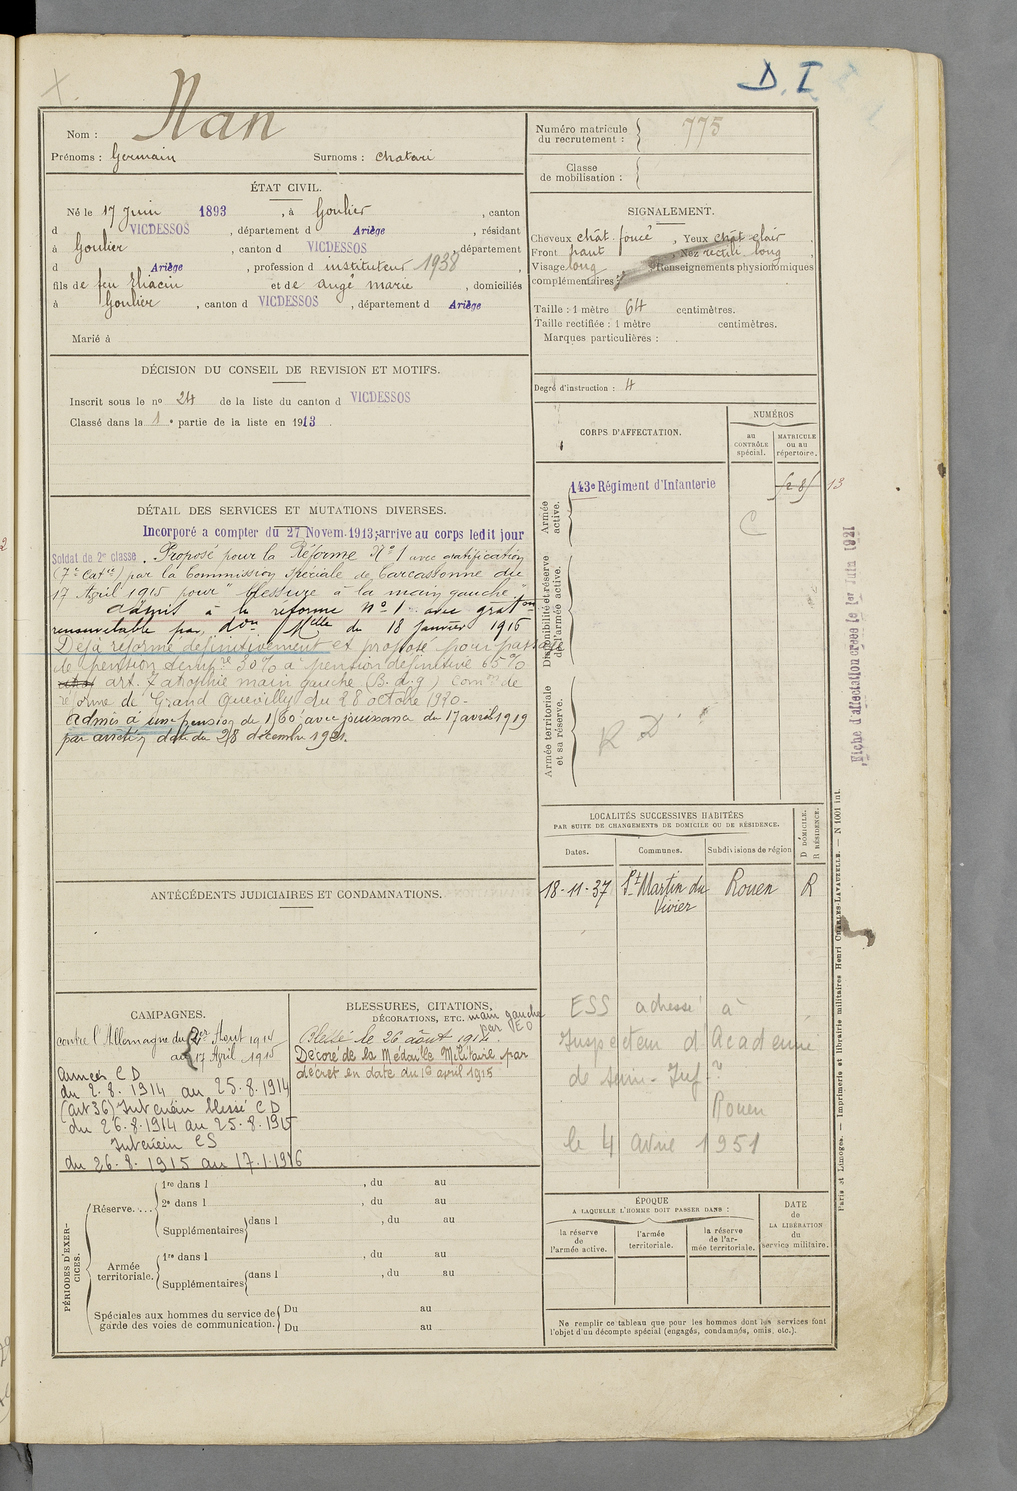 D. I
Nom : Nan
Prénoms : Germain Surnoms : chatari
Numéro matricule du recrutement : 775
Classe de mobilisation :
ÉTAT CIVIL.
Né le 17 Juin 1893, à Goulier, canton
d VICDESSOS, département d Ariège, résidant
à Goulier, canton d VICDESSOS, département
d Ariège, profession d instituteur 1938,
fils de feu Eliacin et de Ange marie, domiciliés
à Goulier, canton d VICDESSOS, département d Ariège
Marié à
SIGNALEMENT.
Cheveux chât. foncé, Yeux chât clair
Front haut, Nez rectil. long
Visage long Renseignements physionomiques
complémentaires :
Taille : 1 mètre 64 centimètres.
Taille rectifiée : 1 mètre centimètres.
Marques particulières :
Degré d'instruction : 4
DÉCISION DU CONSEIL DE REVISION ET MOTIFS.
Inscrit sous le nº 24 de la liste du canton d VICDESSOS
Classé dans la 1e partie de la liste en 1913.
DÉTAIL DES SERVICES ET MUTATIONS DIVERSES.
Incorporé a compter du 27 Novem. 1913; arrive au corps ledit jour
Soldat de 2e classe. Proposé pour la Réforme Nº 1 avec gratification
(7e Catie) par la Commission Spéciale de Carcassonne du
17 April 1915 pour "blessure à la main gauche."
admis à la réforme Nº 1 avec graton
renouvelable par don Melle du 18 janvier 1916
Déjà réformé définitivement et proposé pour passage
de pension temp re 30% à pension définitive 65%
art. 7 atrophie main gauche (B.d.g) Comon de
réforme de Grand Quevilly du 28 octobre 1920.
Admis à une pension de 1560 avec jouissance du 17 avril 1919
par arrêté en date du 28 décembre 1921.
CORPS D'AFFECTATION.
NUMÉROS
au CONTRÔLE spécial.
MATRICULE ou au répertoire.
Armée active.
143e Régiment d'Infanterie
C
13
Disponibilité et réserve de l'armée active.
Armée territoriale et sa réserve.
R D
Fiche d'affectation créée le 1er Juin 1921
LOCALITÉS SUCCESSIVES HABITÉES
PAR SUITE DE CHANGEMENTS DE DOMICILE OU DE RÉSIDENCE.
Dates. Communes. Subdivisions de région D DOMICILE. R RÉSIDENCE.
18-11-37 St Martin du Vivier Rouen R
ESS adressé à
Inspecteur d'Academie
de Seine-Inf. ?
Rouen
le 4 avril 1951
ANTÉCÉDENTS JUDICIAIRES ET CONDAMNATIONS.
CAMPAGNES.
contre l'Allemagne du 2er Aout 1914
au 17 April 1915
Armées C D
du 2.8.1914 au 25.8.1914
(art 36) Intérieur blessé C D
du 26.8.1914 au 25.8.1915
Intérieur CS
du 26.8.1915 au 17.1.1916
BLESSURES, CITATIONS,
DÉCORATIONS, ETC.
main gauche
par EO
Blessé le 26 août 1914.
Décoré de la Médaille Militaire par
décret en date du 13 avril 1915
PÉRIODES D'EXERCICES.
Réserve.... 1re dans l , du au
2e dans l , du au
Supplémentaires dans l , du au
Armée territoriale. 1re dans l , du au
Supplémentaires dans l , du au
Spéciales aux hommes du service de garde des voies de communication. Du au
Du au
ÉPOQUE
A LAQUELLE L'HOMME DOIT PASSER DANS :
la réserve de l'armée active.
l'armée territoriale.
la réserve de l'armée territoriale.
DATE de LA LIBÉRATION du service militaire.
Ne remplir ce tableau que pour les hommes dont les services font
l'objet d'un décompte spécial (engagés, condamnés, omis, etc.).
Paris et Limoges. — Imprimerie et librairie militaires Henri CHARLES-LAVAUZELLE. — N 1001 int.